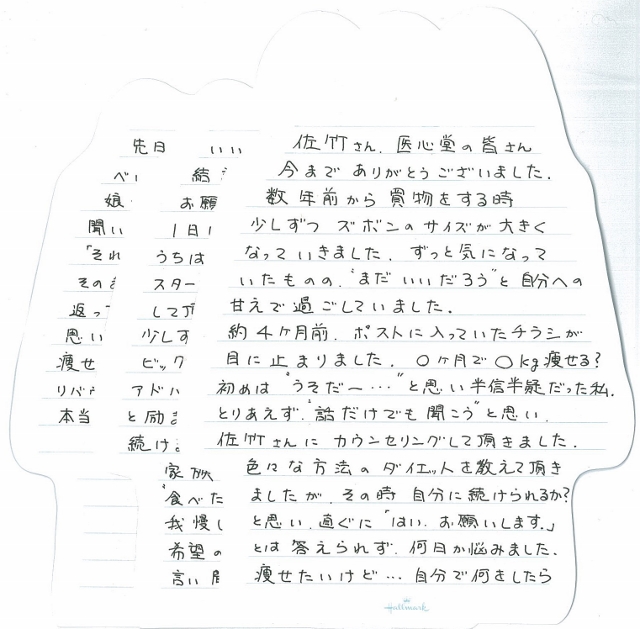 佐竹さん、医心堂の皆さん
今まで ありがとうございました。
数年前から 買物をする時
少しずつ ズボンのサイズが大きく
なっていきました。ずっと気になって
いたものの、"まだ いいだろう"と 自分への
甘えで過ごしていました。
約4ヶ月前、ポストに入っていたチラシが
目に止まりました。〇ヶ月で 〇kg痩せる?
初めは "うそだー…"と思い半信半疑だった私。
とりあえず、"話だけでも 聞こう"と思い、
佐竹さんに カウンセリングして頂きました。
色々な方法の ダイエットを教えて頂き
ましたが、その時 自分に続けられるか?
と思い、直ぐに「はい、お願いします。」
とは 答えられず、何日か悩みました。
痩せたいけど…自分で何をしたら
いい
結
お願
1日
うちは
スター
して
少しず
ビック
アド
と励
続け
家族
食べた
我慢
希望の
言い
先日
べ
娘
聞い
「それ
その
返っ
思い
痩せ
リバ
本当
Hallmark